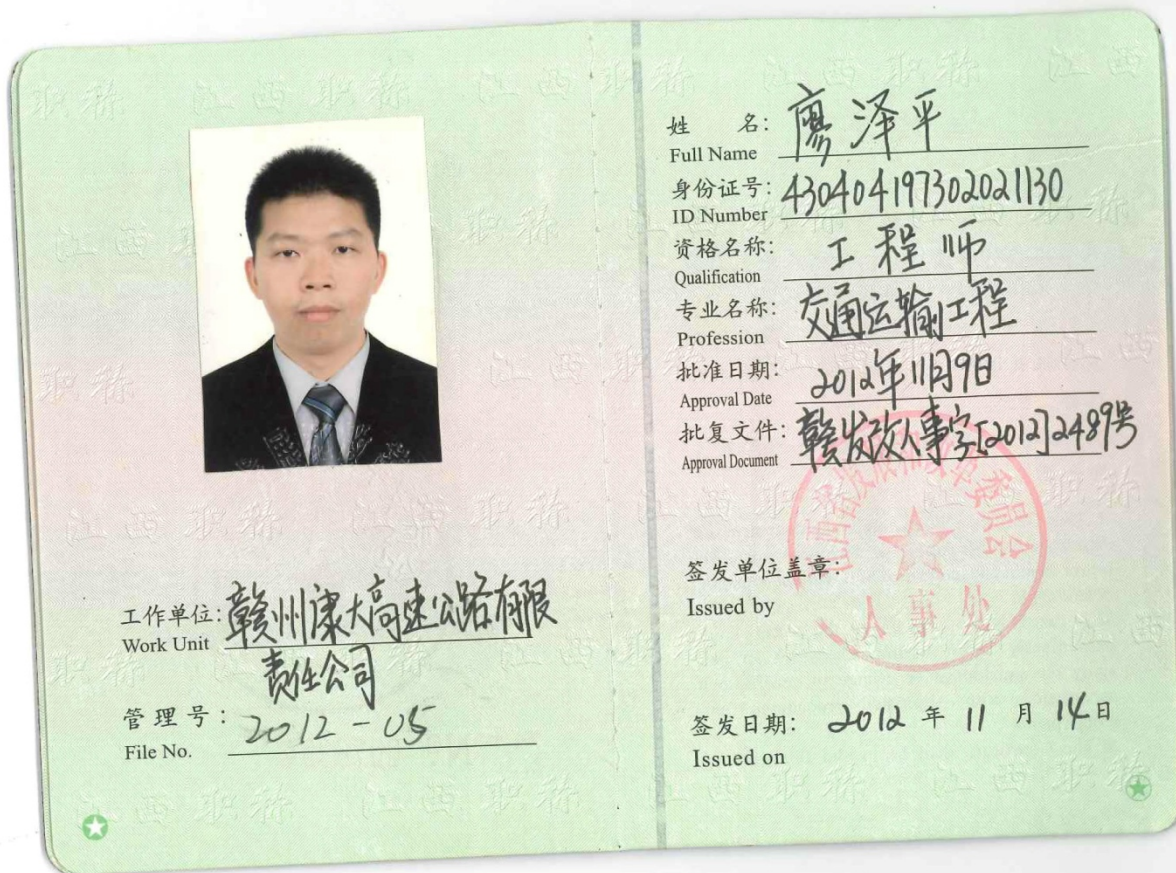 工作单位：赣州康大高速公路有限
Work Unit
责任公司
管理号：2012-05
File No.
姓 名：廖泽平
Full Name
身份证号：430404197302021130
ID Number
资格名称：工程师
Qualification
专业名称：交通运输工程
Profession
批准日期：2012年11月9日
Approval Date
批复文件：赣发改人事字[2012]2489号
Approval Document
江西省发展和改革委员会
人事处
签发单位盖章：
Issued by
签发日期：2012年11月14日
Issued on
江西职称